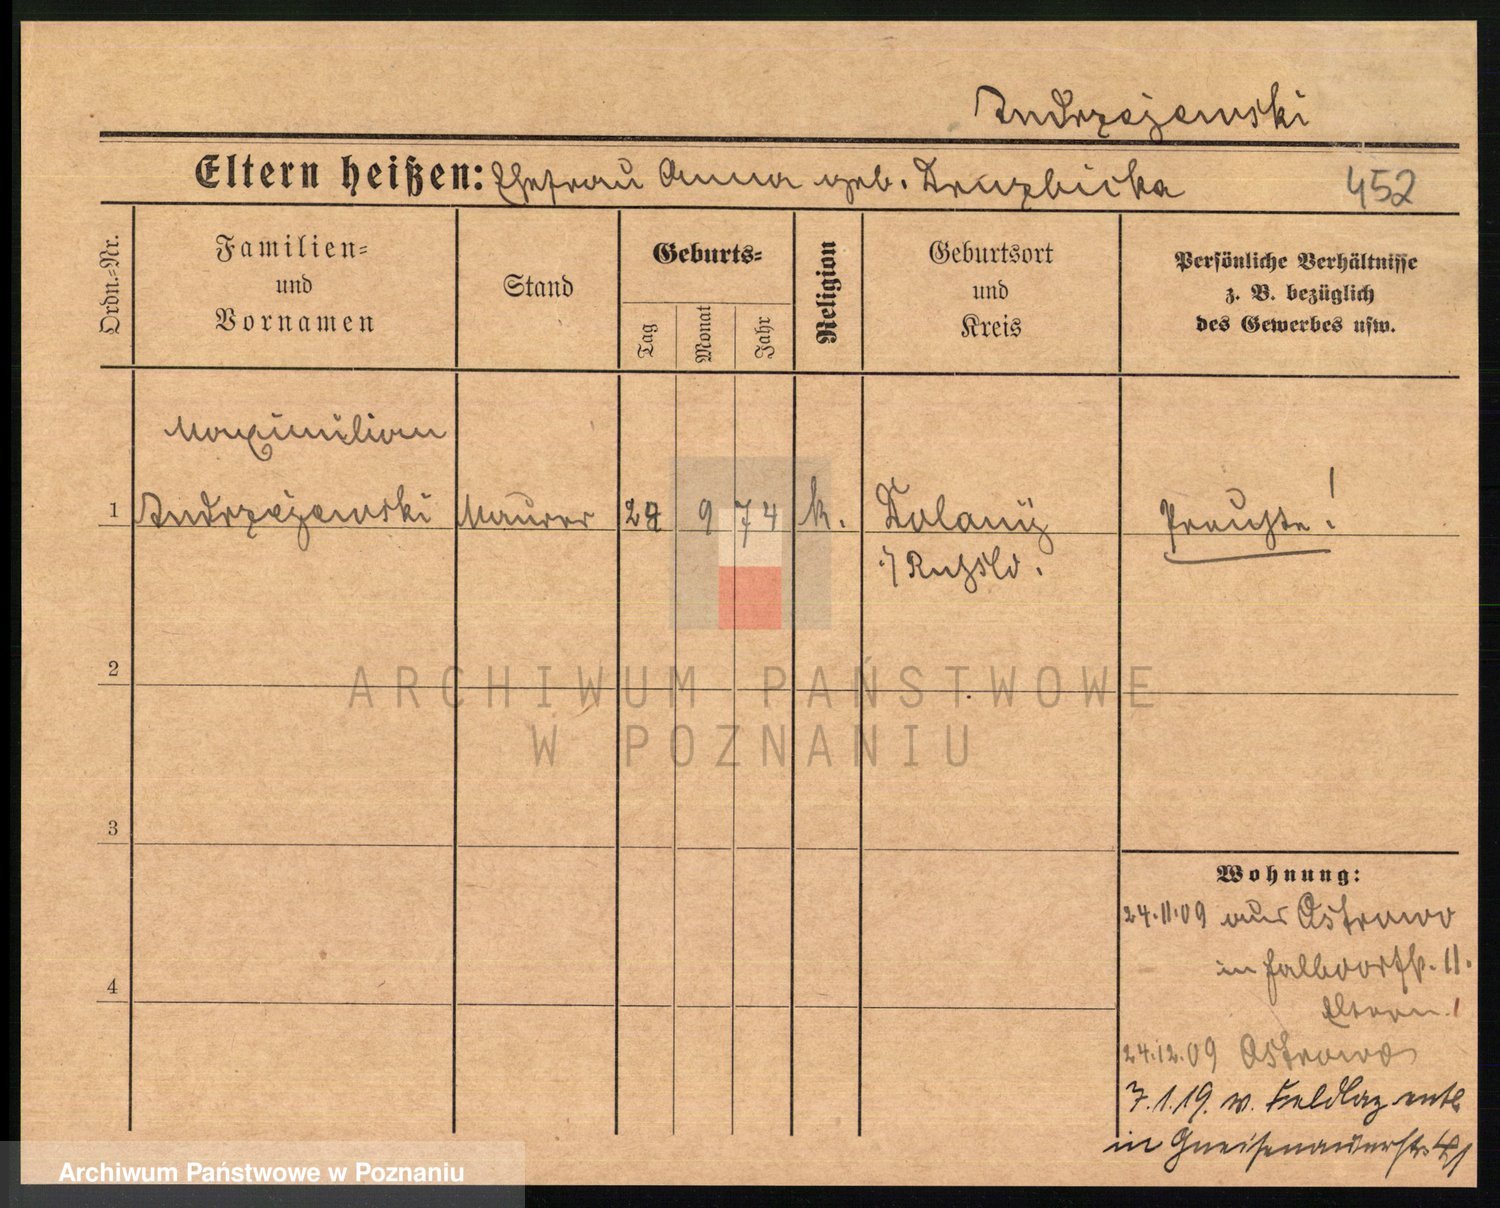 Andrzejewski
Eltern heißen: Ehefrau Anna geb. Druzbicka 452
Ordn.-Nr.
Familien-
und
Vornamen
Stand
Geburts-
Tag
Monat
Jahr
Religion
Geburtsort
und
Kreis
Persönliche Verhältnisse
z. B. bezüglich
des Gewerbes usw.
Maximilian
1 Andrzejewski Maurer 9 74 k. Preuße!
i/ Rußld.
2
3
4
ARCHIWUM PAŃSTWOWE
W POZNANIU
Wohnung:
24.11.09 aus Ostrowo
in 11.
Eltern.
24.12.09 Ostrowo
7.1.19. v. Feldlaz entl
in Gneisenauerstr.
Archiwum Państwowe w Poznaniu